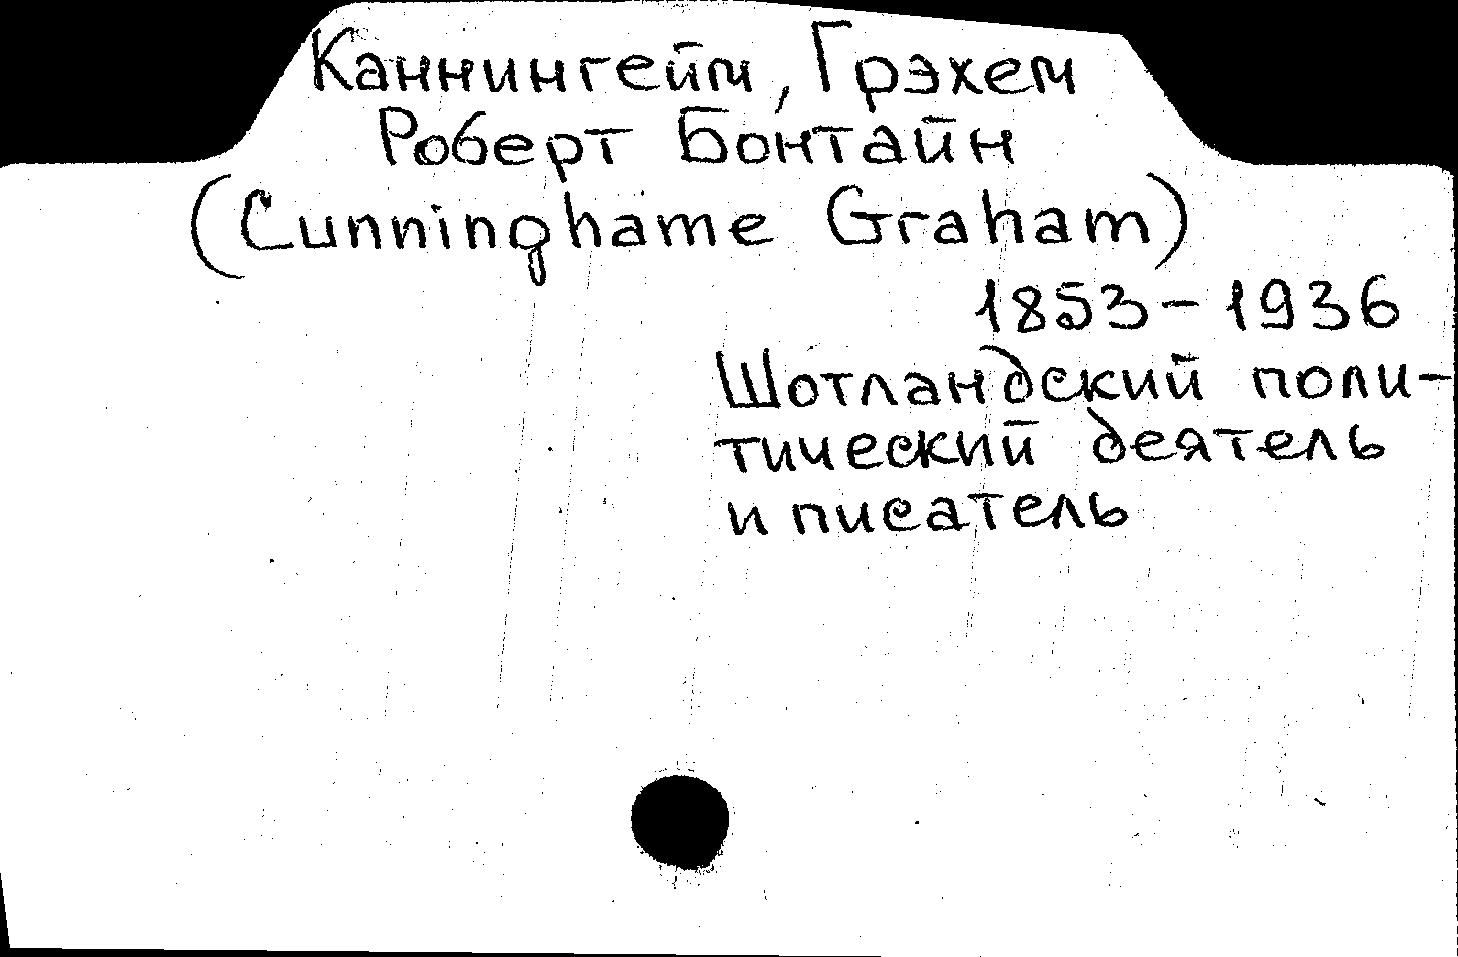 Каннингейм, Грэхем
Роберт Бонтайн
(Cunninghame Graham)
1853-1936
Шотландский поли-
тический деятель
и писатель